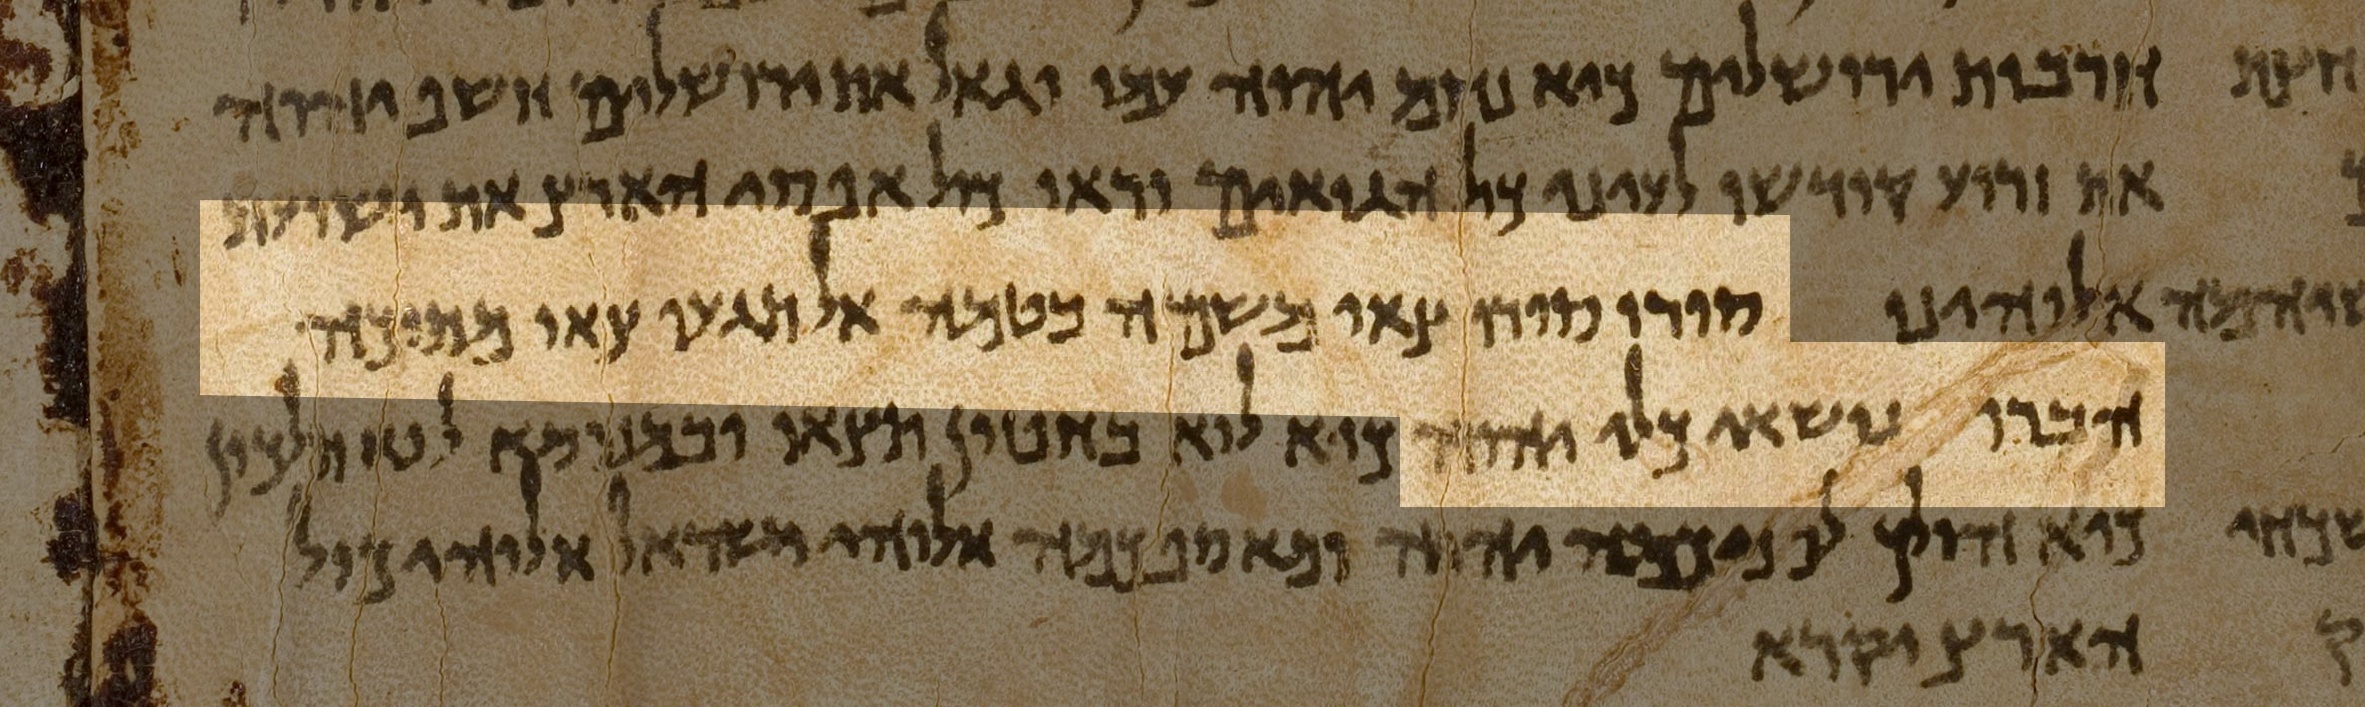 חרבות ירושלים כיא נחם יהוה עמו וגאל את ירושלים חשף יהוה
את זרוע קודשו לעיני כול הגואים וראו כול אפסי הארץ את ישועת
אלוהינו סורו סורו צאו משמה בטמה אל תגעו צאו מתוכה
הברו נושאי כלי יהוה כיא לוא בחפזון תצאו ובמנוסא לוא תלכון
כיא הולך לפניכמה יהוה ומאספכמה אלוהי ישראל אלוהי כול
הארץ יקרא